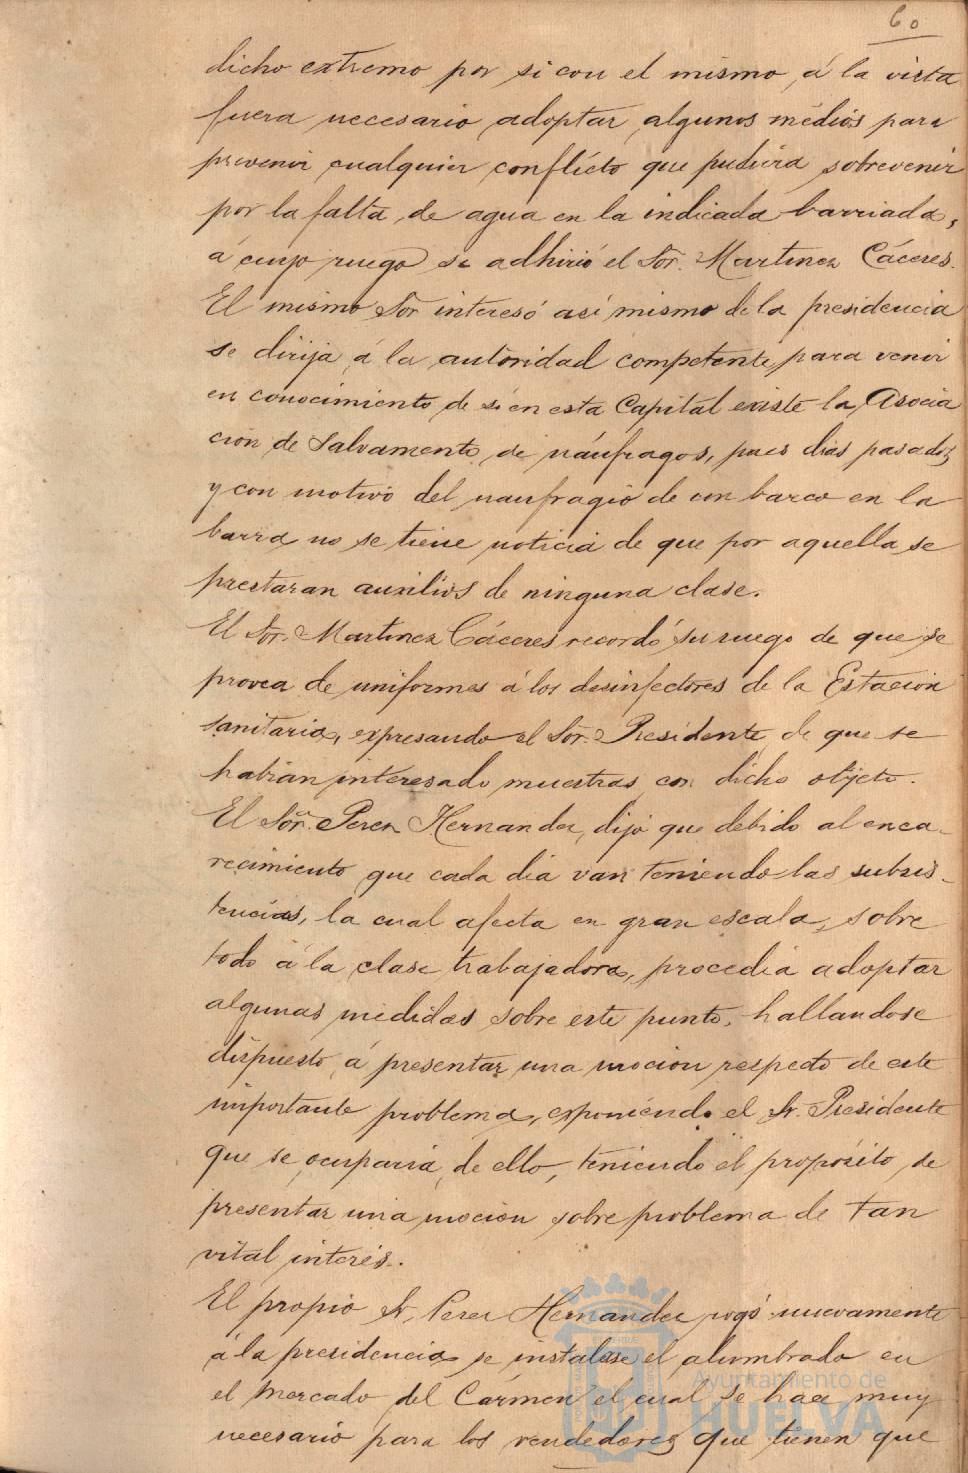 60
dicho extremo por si con el mismo, á la vista
fuera necesario adoptar algunos médios para
prevenir cualquier conflicto que pudiera sobrevenir
por la falta de agua en la indicada barriada,
á cuyo ruego se adhirió el Sor. Martinez Cáceres.
El mismo Sor interesó así mismo de la presidencia
se dirija á la autoridad competente para venir
en conocimiento de si en esta Capital existe la Asocia
ción de Salvamento de náufragos, pues dias pasados
y con motivo del naufragio de un barco en la
barra no se tiene noticia de que por aquella se
prestaran auxilios de ninguna clase.
El Sor. Martinez Cáceres recordó su ruego de que se
provea de uniformes á los desinfectores de la Estación
sanitaria, expresando el Sor. Presidente de que se
habian interesado muestras con dicho objeto.
El Sor. Perez Hernandez, dijo que debido al enca-
recimiento que cada dia van teniendo las subsis-
tencias, la cual afecta en gran escala, sobre
todo á la clase trabajadora, procedia adoptar
algunas medidas sobre este punto, hallandose
dispuesto á presentar una mocion respecto de este
importante problema, exponiendo el Sr. Presidente
que se ocuparia de ello, teniendo el propósito de
presentar una mocion sobre problema de tan
vital interés.
El propio Sr. Perez Hernandez rogó nuevamente
á la presidencia se instalase el alumbrado en
el Mercado del Carmen el cual se hace muy
necesario para los vendedores que tienen que
Ayuntamiento de
HUELVA